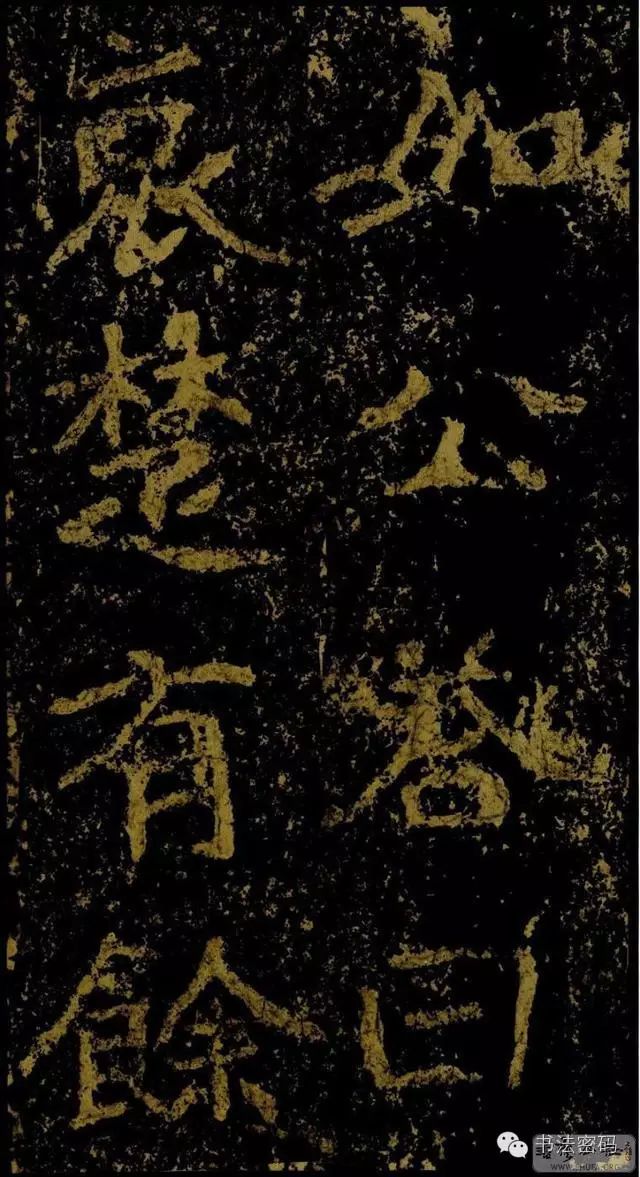 如公荅曰
哀楚有餘
书法密码